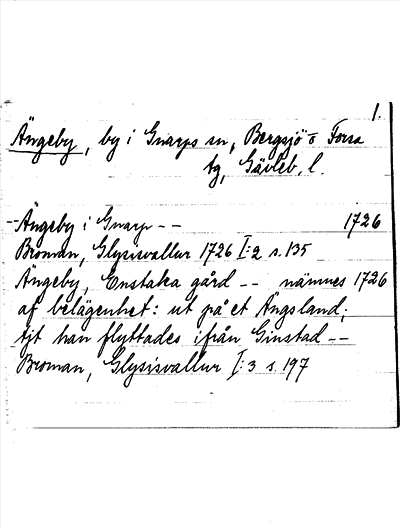 1.
Ängeby, by i Gnarps sn, Bergsjö o Forsa
tg, Gävleb. l.
Ängeby i Gnarp -- 1726
Broman, Glysisvallur 1726 I:2 s. 135
Ängeby, Enstaka gård -- nämnes 1726
af belägenhet: ut på et Ängsland,
tjt han flyttades ifrån Ginstad --
Broman, Glysisvallur I:3 s. 197